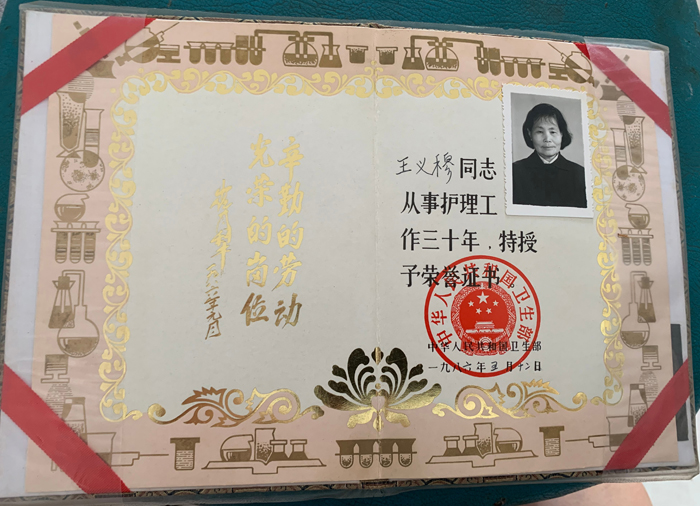 辛勤的劳动
光荣的岗位
王义穆同志
从事护理工
作三十年，特授
予荣誉证书
中华人民共和国卫生部
中华人民共和国卫生部
一九八六年五月十二日